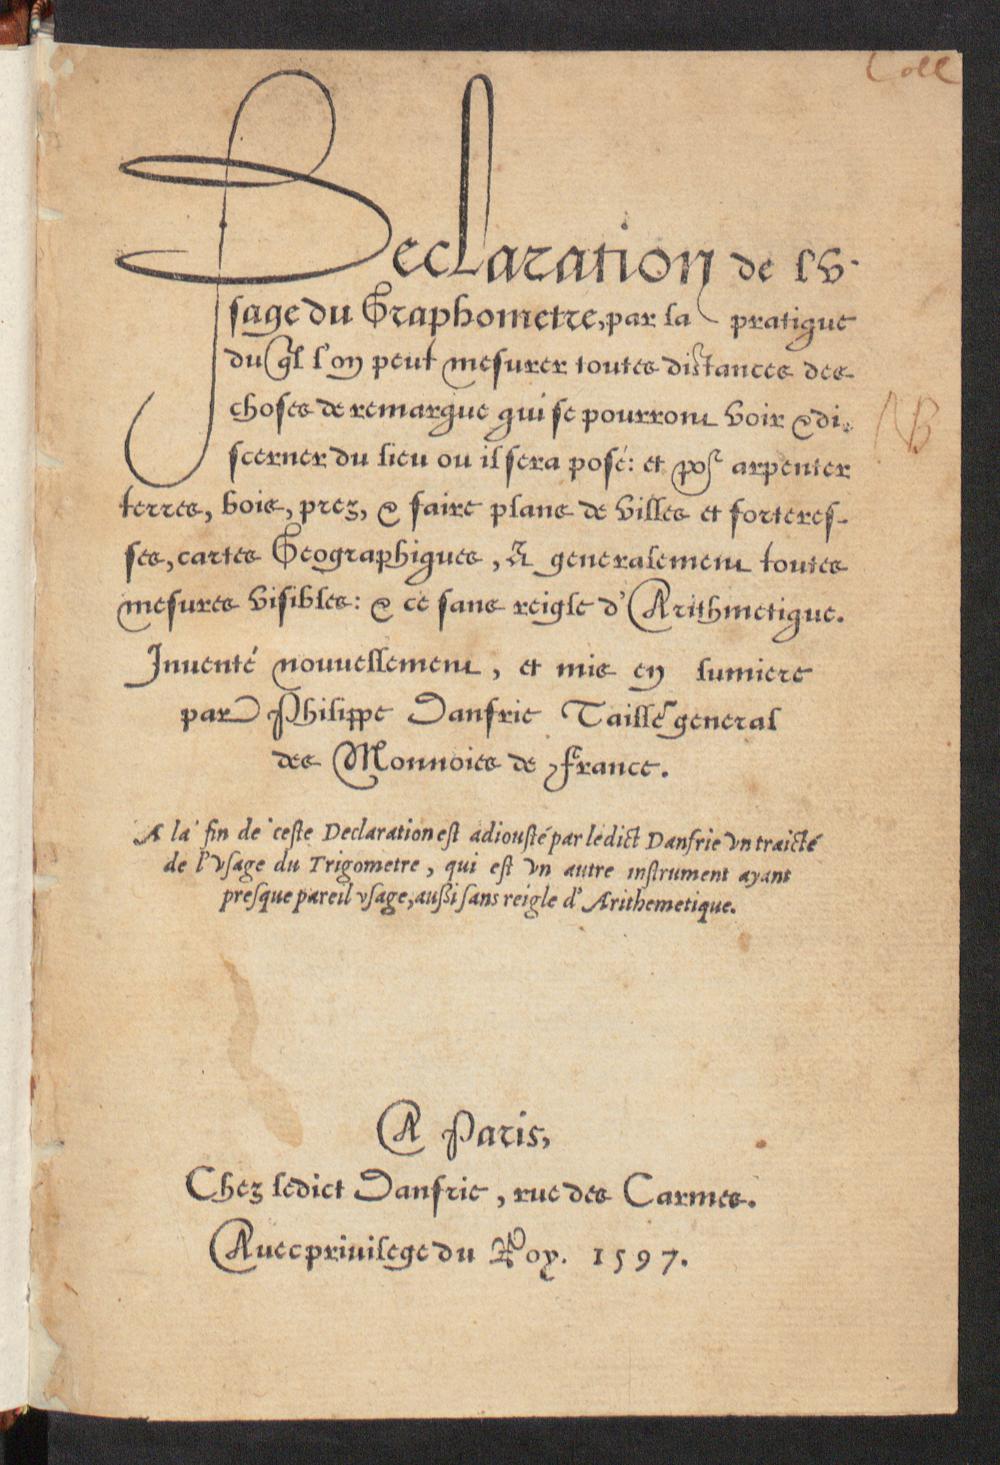 Coll
Declaration de l'v-
sage du Graphometre, par la pratique
du q̃l l'on peut mesurer toutes distances des
choses de remarque qui se pourront voir & di-
scerner du lieu ou il sera posé: et poʳ arpenter
terres, bois, prez, & faire plans de villes et forteres-
ses, cartes Geographiques, & generalement toutes
mesures visibles: & ce sans reigle d'Arithmetique.
Inuenté nouuellement, et mis en lumiere
par Philippe Danfrie Tailleʳ general
des Monnoies de France.
A la fin de ceste Declaration est adiousté par ledict Danfrie vn traicté
de l'vsage du Trigometre, qui est vn autre instrument ayant
presque pareil vsage, aussi sans reigle d'Arithemetique.
NB
A Paris,
Chez ledict Danfrie, rue des Carmes.
Auec priuilege du Roy. 1597.